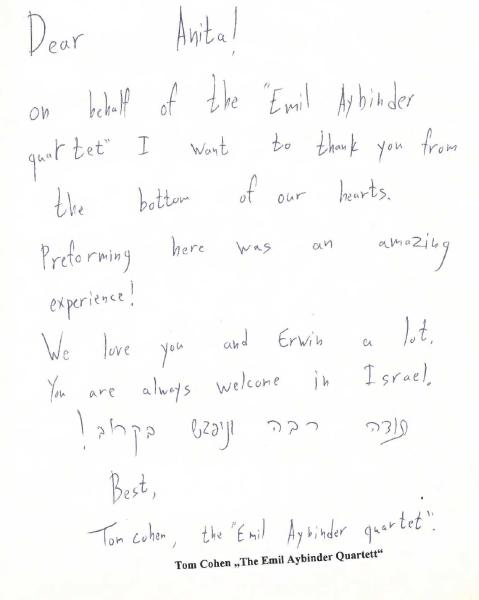 Dear Anita!
on behalf of the "Emil Aybinder
quartet" I want to thank you from
the bottom of our hearts.
Preforming here was an amazing
experience!
We love you and Erwin a lot.
You are always welcome in Israel.
תודה רבה וניפגש בקרוב!
Best,
Tom cohen, the "Emil Aybinder quartet".
Tom Cohen „The Emil Aybinder Quartett“